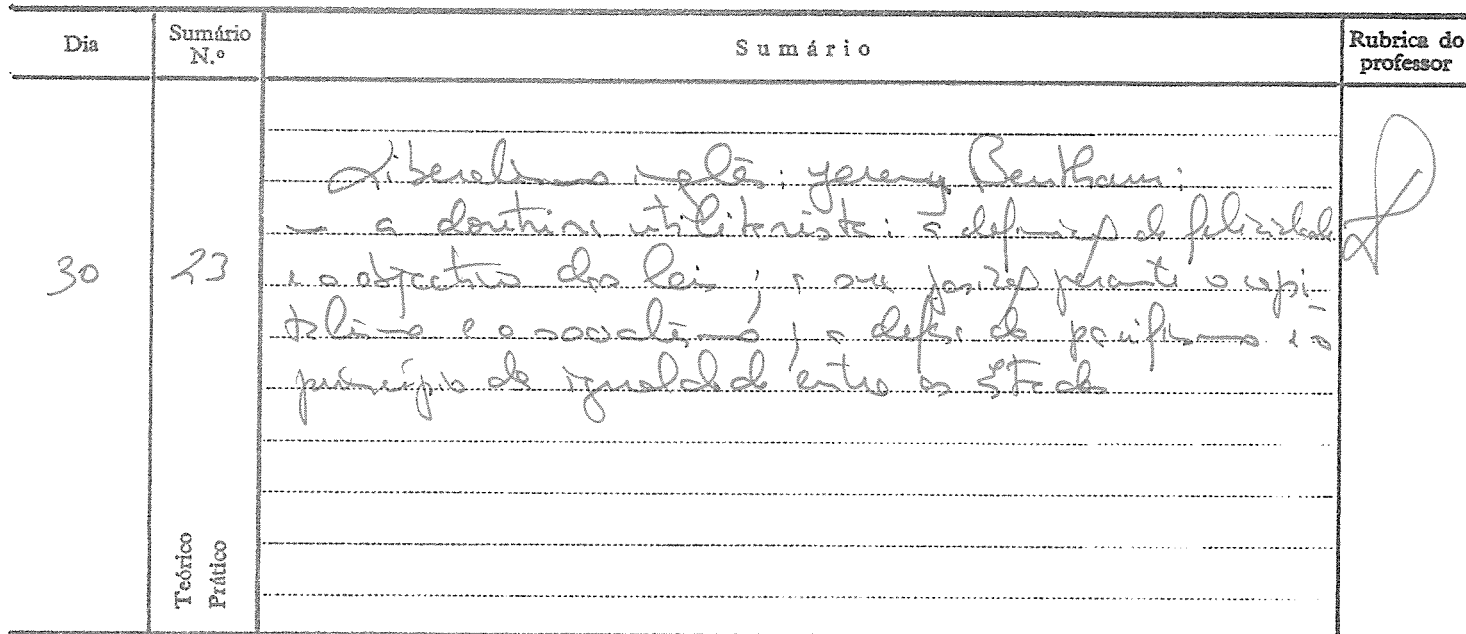 Dia
Sumário N.º
Sumário
Rubrica do professor
30
23
Liberalismo inglês: Jeremy Bentham:
– a doutrina utilitarista: a definição de felicidade
e o objectivo das leis; a sua posição perante o capi-
talismo e o socialismo; a defesa do pacifismo e o
princípio da igualdade entre os Estados
Teórico
Prático